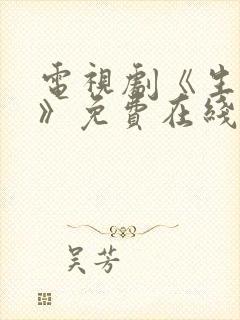 電視劇《生
》免費在綫
吳芳